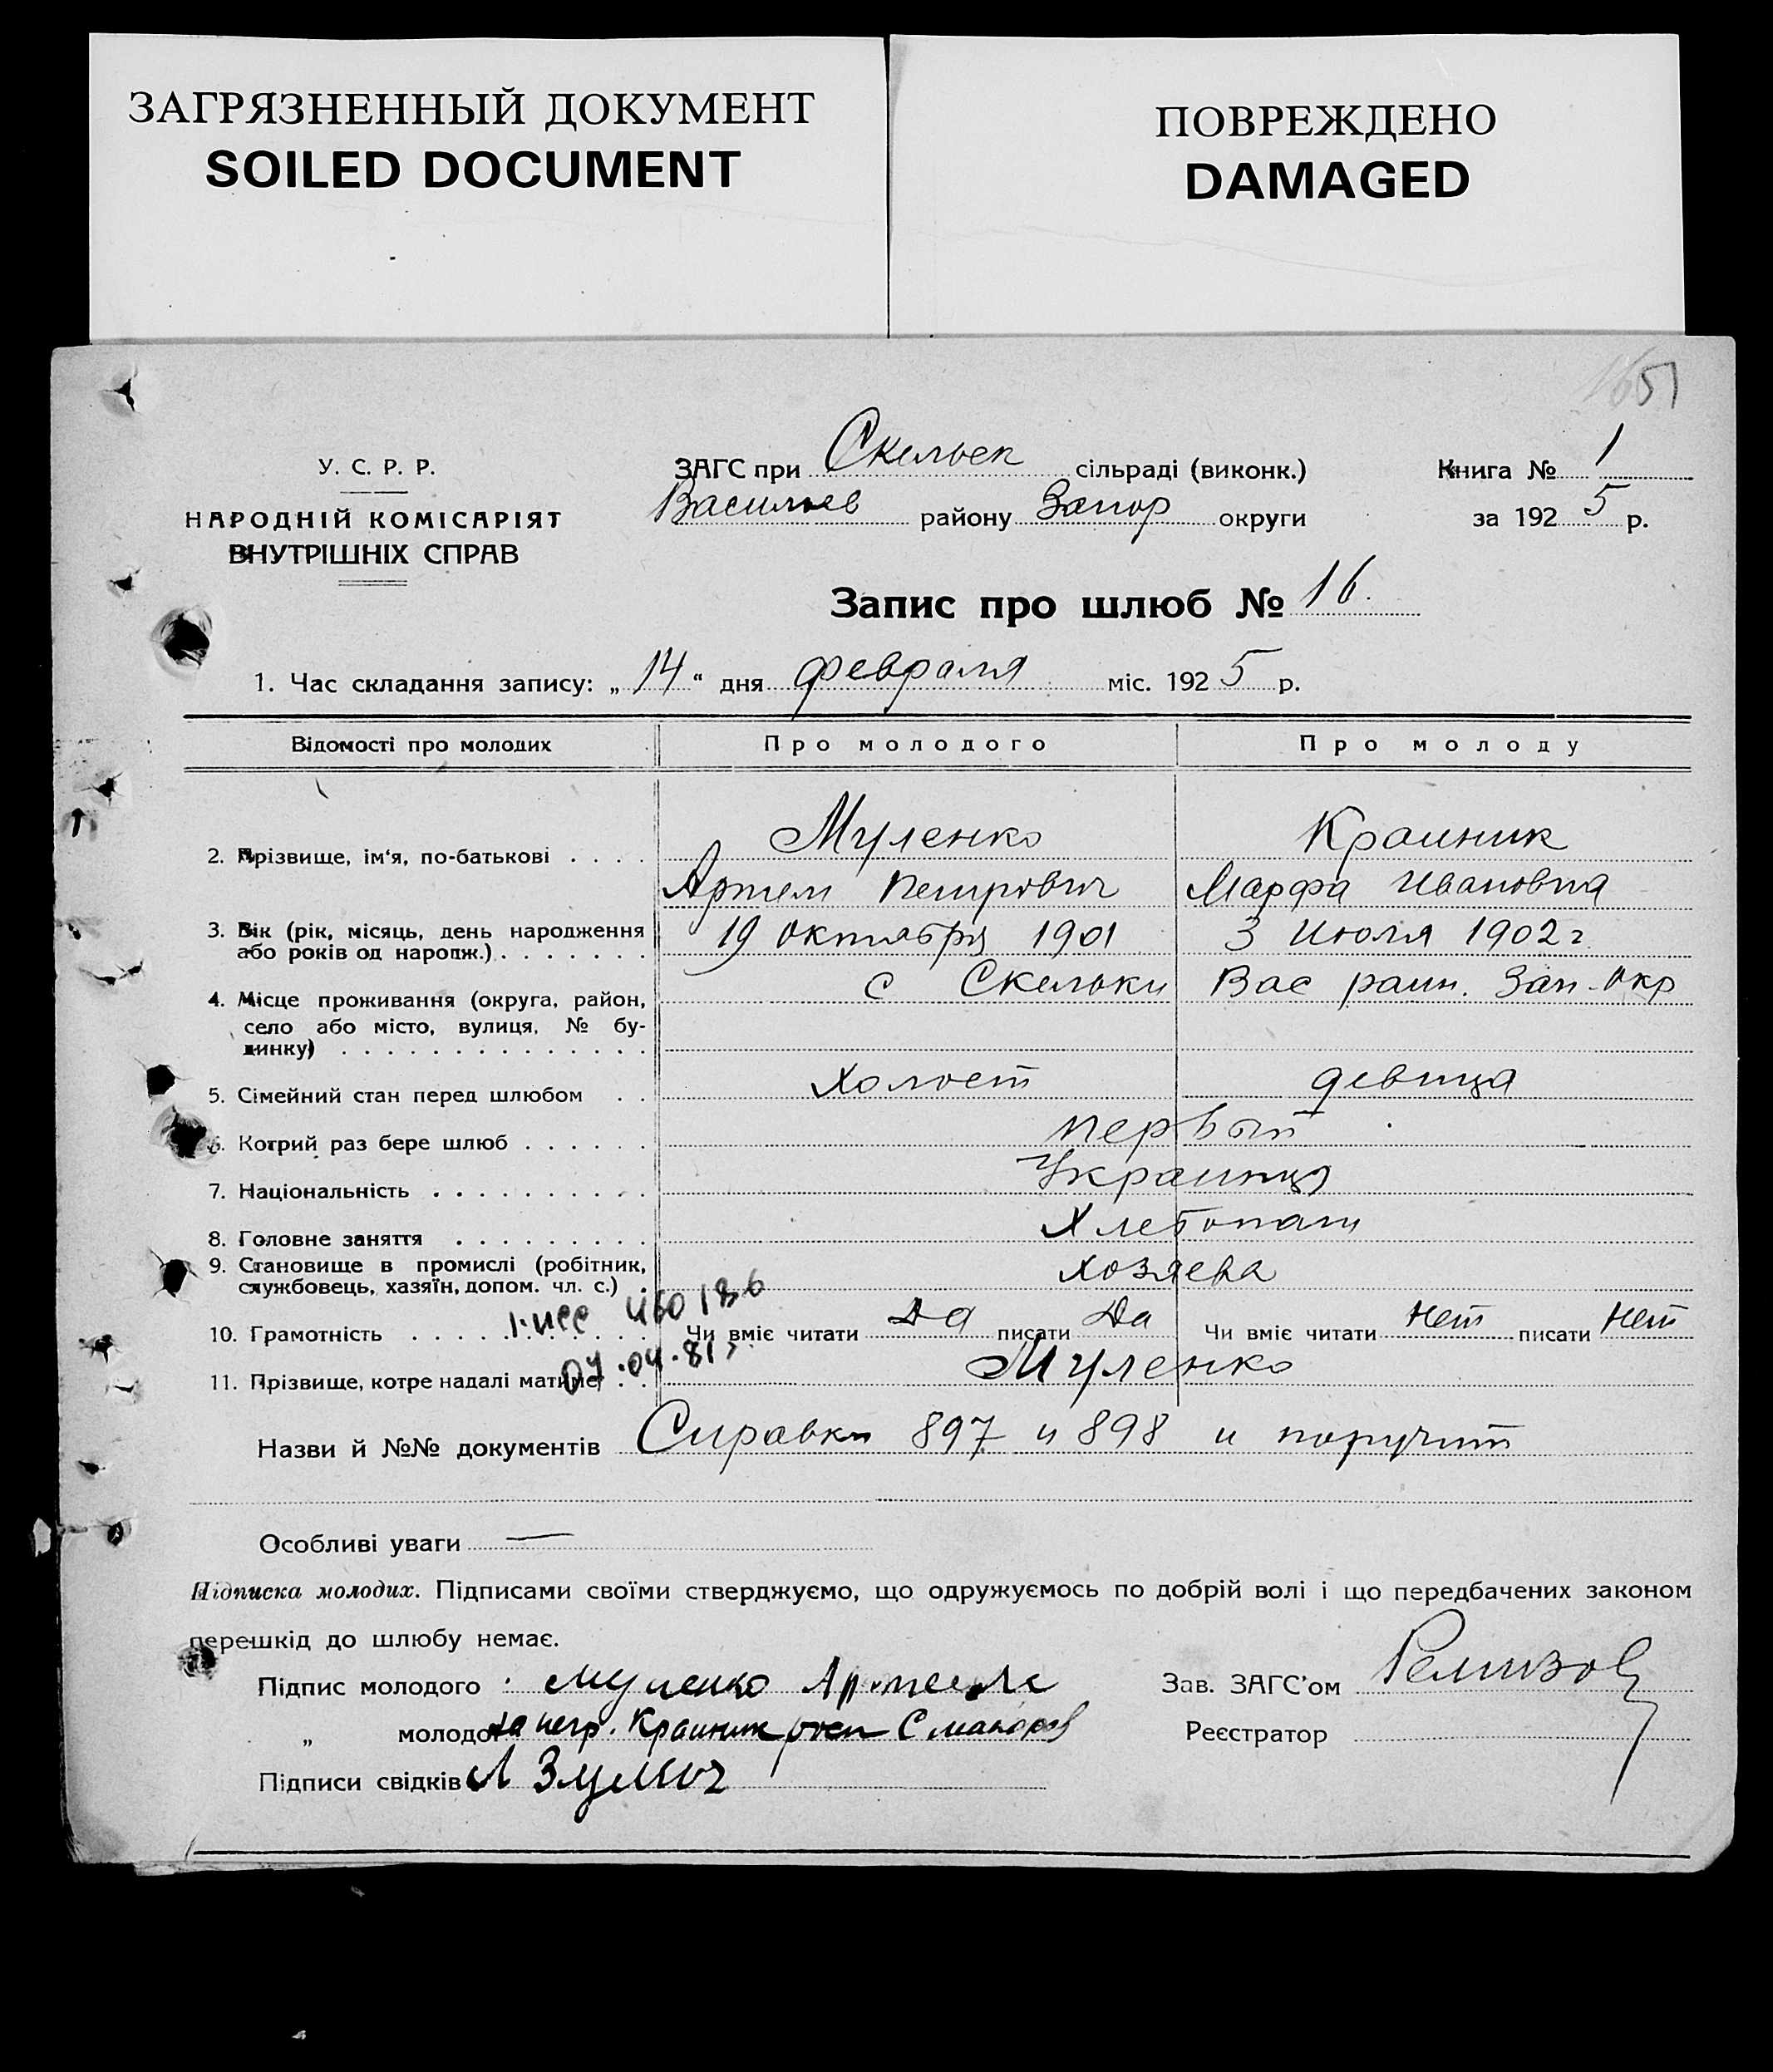 ЗАГРЯЗНЕННЫЙ ДОКУМЕНТ
SOILED DOCUMENT
ПОВРЕЖДЕНО
DAMAGED
51
У. С. Р. Р.
НАРОДНІЙ КОМІСАРІЯТ
ВНУТРІШНІХ СПРАВ
ЗАГС при Скельск сільраді (виконк.)
Васильев району Запор округи
Книга № 1
за 1925 р.
Запис про шлюб № 16.
1. Час складання запису: „14“ дня февраля міс. 1925 р.
Відомості про молодих Про молодого Про молоду
Муленко Краиник
2. Прізвище, ім'я, по-батькові . . . .
Артем Петрович Марфа Ивановна
3. Вік (рік, місяць, день народження 19 октября 1901 3 Июля 1902 г
або років од народж.) . . . . . . .
4. Місце проживання (округа, район, с Скельки Вас раин. Зап. Окр
село або місто, вулиця, № бу-
динку) . . . . . . . . . . . . . .
5. Сімейний стан перед шлюбом . . Холост девица
6. Котрий раз бере шлюб . . . . . . первый
7. Національність . . . . . . . . . . Украинцы
8. Головне заняття . . . . . . . . . Хлебопаш
9. Становище в промислі (робітник,
службовець, хазяїн, допом. чл. с.) . хозяева
460186
10. Грамотність . . . . . . . . . . . Чи вміє читати Да писати Да Чи вміє читати Нет писати Нет
07.04.81
11. Прізвище, котре надалі матиме . . Муленко
Назви й №№ документів Справки 897 и 898 и поручит
Особливі уваги —
Підписка молодих. Підписами своїми стверджуємо, що одружуємось по добрій волі і що передбачених законом
перешкід до шлюбу немає.
Підпис молодого Муленко Артем Зав. ЗАГС'ом Ремизов
„ молодої за негр. Краиник росп Реєстратор
Підписи свідків